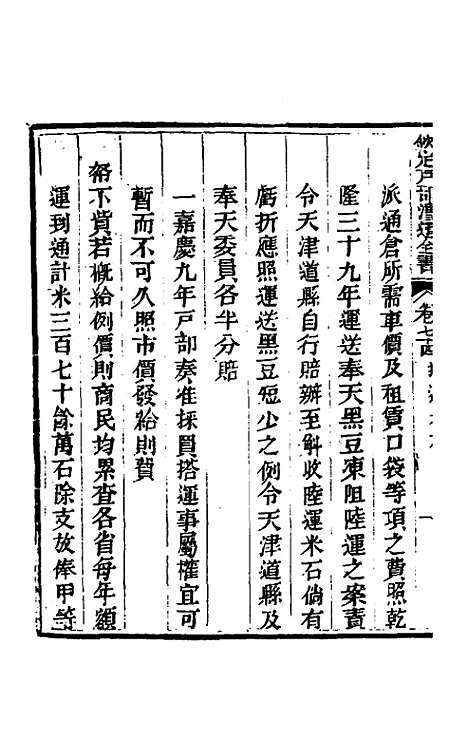 欽定戶部漕運全書 卷七四
派通倉所需車價及租賃口袋等項之費照乾
隆三十九年運送奉天黑豆凍阻陸運之案責
令天津道縣自行賠辦至斛收陸運米石倘有
虧折應照運送黑豆短少之例令天津道縣及
奉天委員各半分賠
一嘉慶九年戶部奏准採買搭運事屬權宜可
暫而不可久照市價發給則費
帑不貲若概給例價則商民均累查各省每年額
運到通計米三百七十餘萬石除支放俸甲等